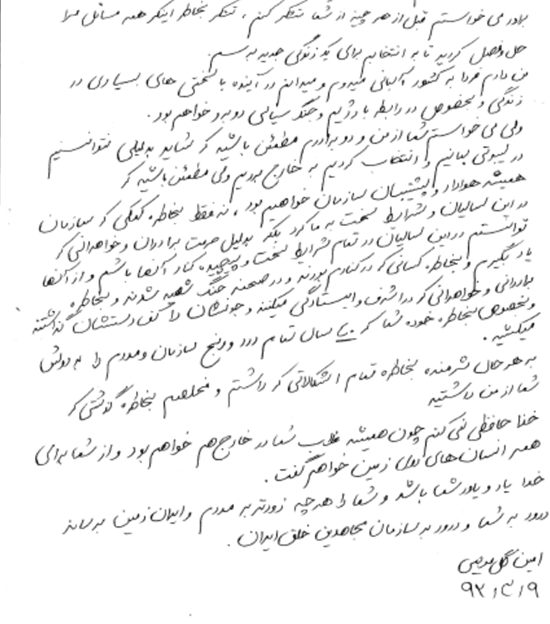 برادر می خواستم قبل از هر چیز از شما تشکر کنم ، تشکر بخاطر اینکه همه مسائل مرا
حل و فصل کردید تا به انتخابم برای یک زندگی جدید برسم.
من دارم فردا به کشور آلبانی میروم و میدانم در آینده با سختی های بسیاری در
زندگی و بخصوص در رابطه با رژیم و جنگ سیاسی روبرو خواهم بود.
ولی می خواستم شما از من و دو برادرم مطمئن باشید که شاید بدلیلی نتوانستیم
در لیبرتی بمانیم و انتخاب کردیم به خارج برویم ولی مطمئن باشید که
همیشه هوادار و پشتیبان سازمان خواهیم بود ، نه فقط بخاطر کمکی که سازمان
در این سالیان و شرایط سخت به ما کرد بلکه بدلیل حرمت برادران و خواهرانی که
توانستم در این سالیان در تمام شرایط سخت و پیچیده کنار آنها باشم و از آنها
یاد بگیرم و بخاطر کسانی که در کنارم بودند و در صحنه جنگ شهید شدند و بخاطر
برادرانی و خواهرانی که در اشرف و ایستادگی میکنند و جونشان را کف دستشان گذاشته
و بخصوص بخاطر خود شما که سال تمام درد و رنج سازمان و مردم را به دوش
میکشید.
به هر حال شرمنده بخاطر تمام اشکالاتی که داشتم و بخاطر گوشی که
شما از من داشتید
خدا حافظی نمی کنم چون همیشه قلب شما در خارج هم خواهم بود و از شما برای
همه انسان های روی زمین خواهم گفت.
خدا یار و یاور شما باشد و شما را هر چه زودتر به مردم و ایران زمین برساند
درود به شما و درود به سازمان مجاهدین خلق ایران .
امین گل مریمی
۹۲/۳/۹